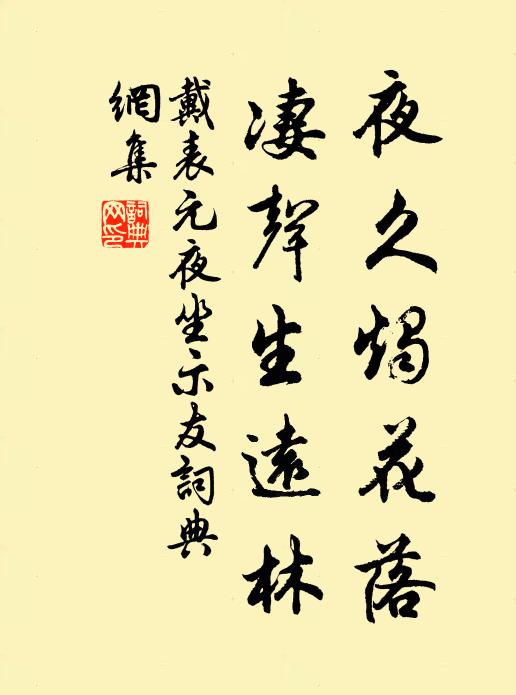 夜久燭花落
淒聲生遠林
戴表元夜坐示友詞典
網集
詞典
网印